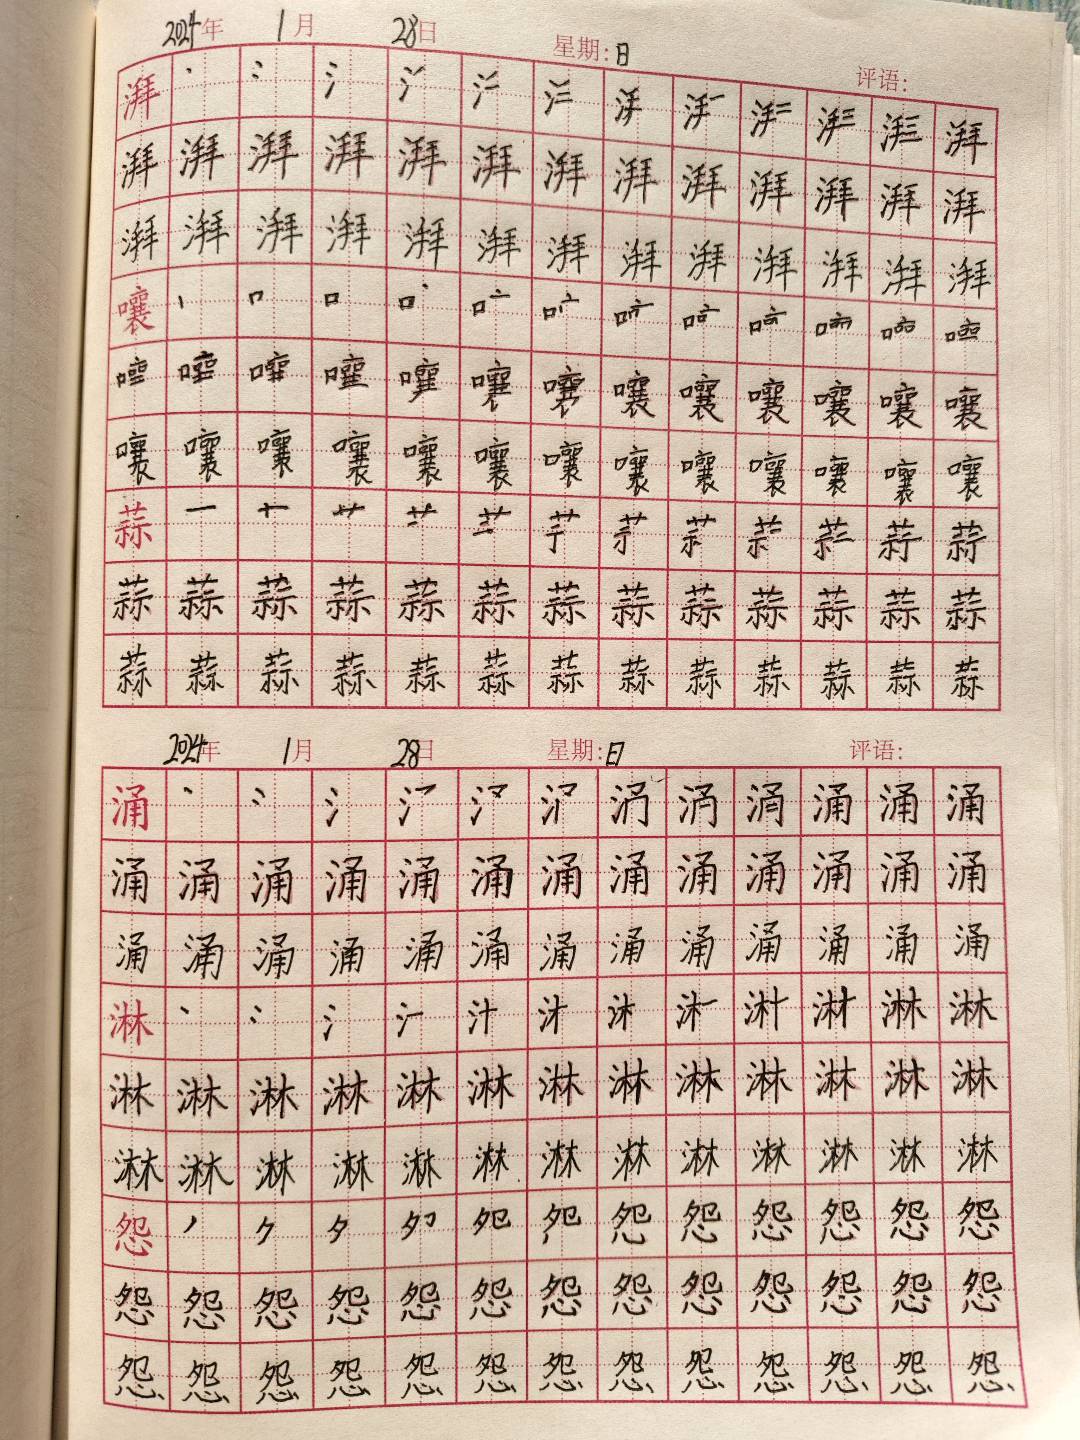 2024年 1月 28日 星期:日 评语:
湃 丶 冫 氵 湃
湃 湃 湃 湃 湃 湃 湃 湃 湃 湃 湃 湃 湃
湃 湃 湃 湃 湃 湃 湃 湃 湃 湃 湃 湃 湃
嚷 丨 口 口
嚷 嚷 嚷 嚷 嚷 嚷
嚷 嚷 嚷 嚷 嚷 嚷 嚷 嚷 嚷 嚷 嚷 嚷 嚷
蒜 一 十 艹
蒜 蒜 蒜 蒜 蒜 蒜 蒜 蒜 蒜 蒜 蒜 蒜 蒜
蒜 蒜 蒜 蒜 蒜 蒜 蒜 蒜 蒜 蒜 蒜 蒜 蒜
2024年 1月 28日 星期:日 评语:
涌 丶 冫 氵 涌 涌 涌
涌 涌 涌 涌 涌 涌 涌 涌 涌 涌 涌 涌 涌
涌 涌 涌 涌 涌 涌 涌 涌 涌 涌 涌 涌 涌
淋 丶 冫 氵 汁 沐 淋 淋
淋 淋 淋 淋 淋 淋 淋 淋 淋 淋 淋 淋 淋
淋 淋 淋 淋 淋 淋 淋 淋 淋 淋 淋 淋 淋
怨 丿 ク 夕 夗 怨 怨 怨 怨
怨 怨 怨 怨 怨 怨 怨 怨 怨 怨 怨 怨 怨
怨 怨 怨 怨 怨 怨 怨 怨 怨 怨 怨 怨 怨